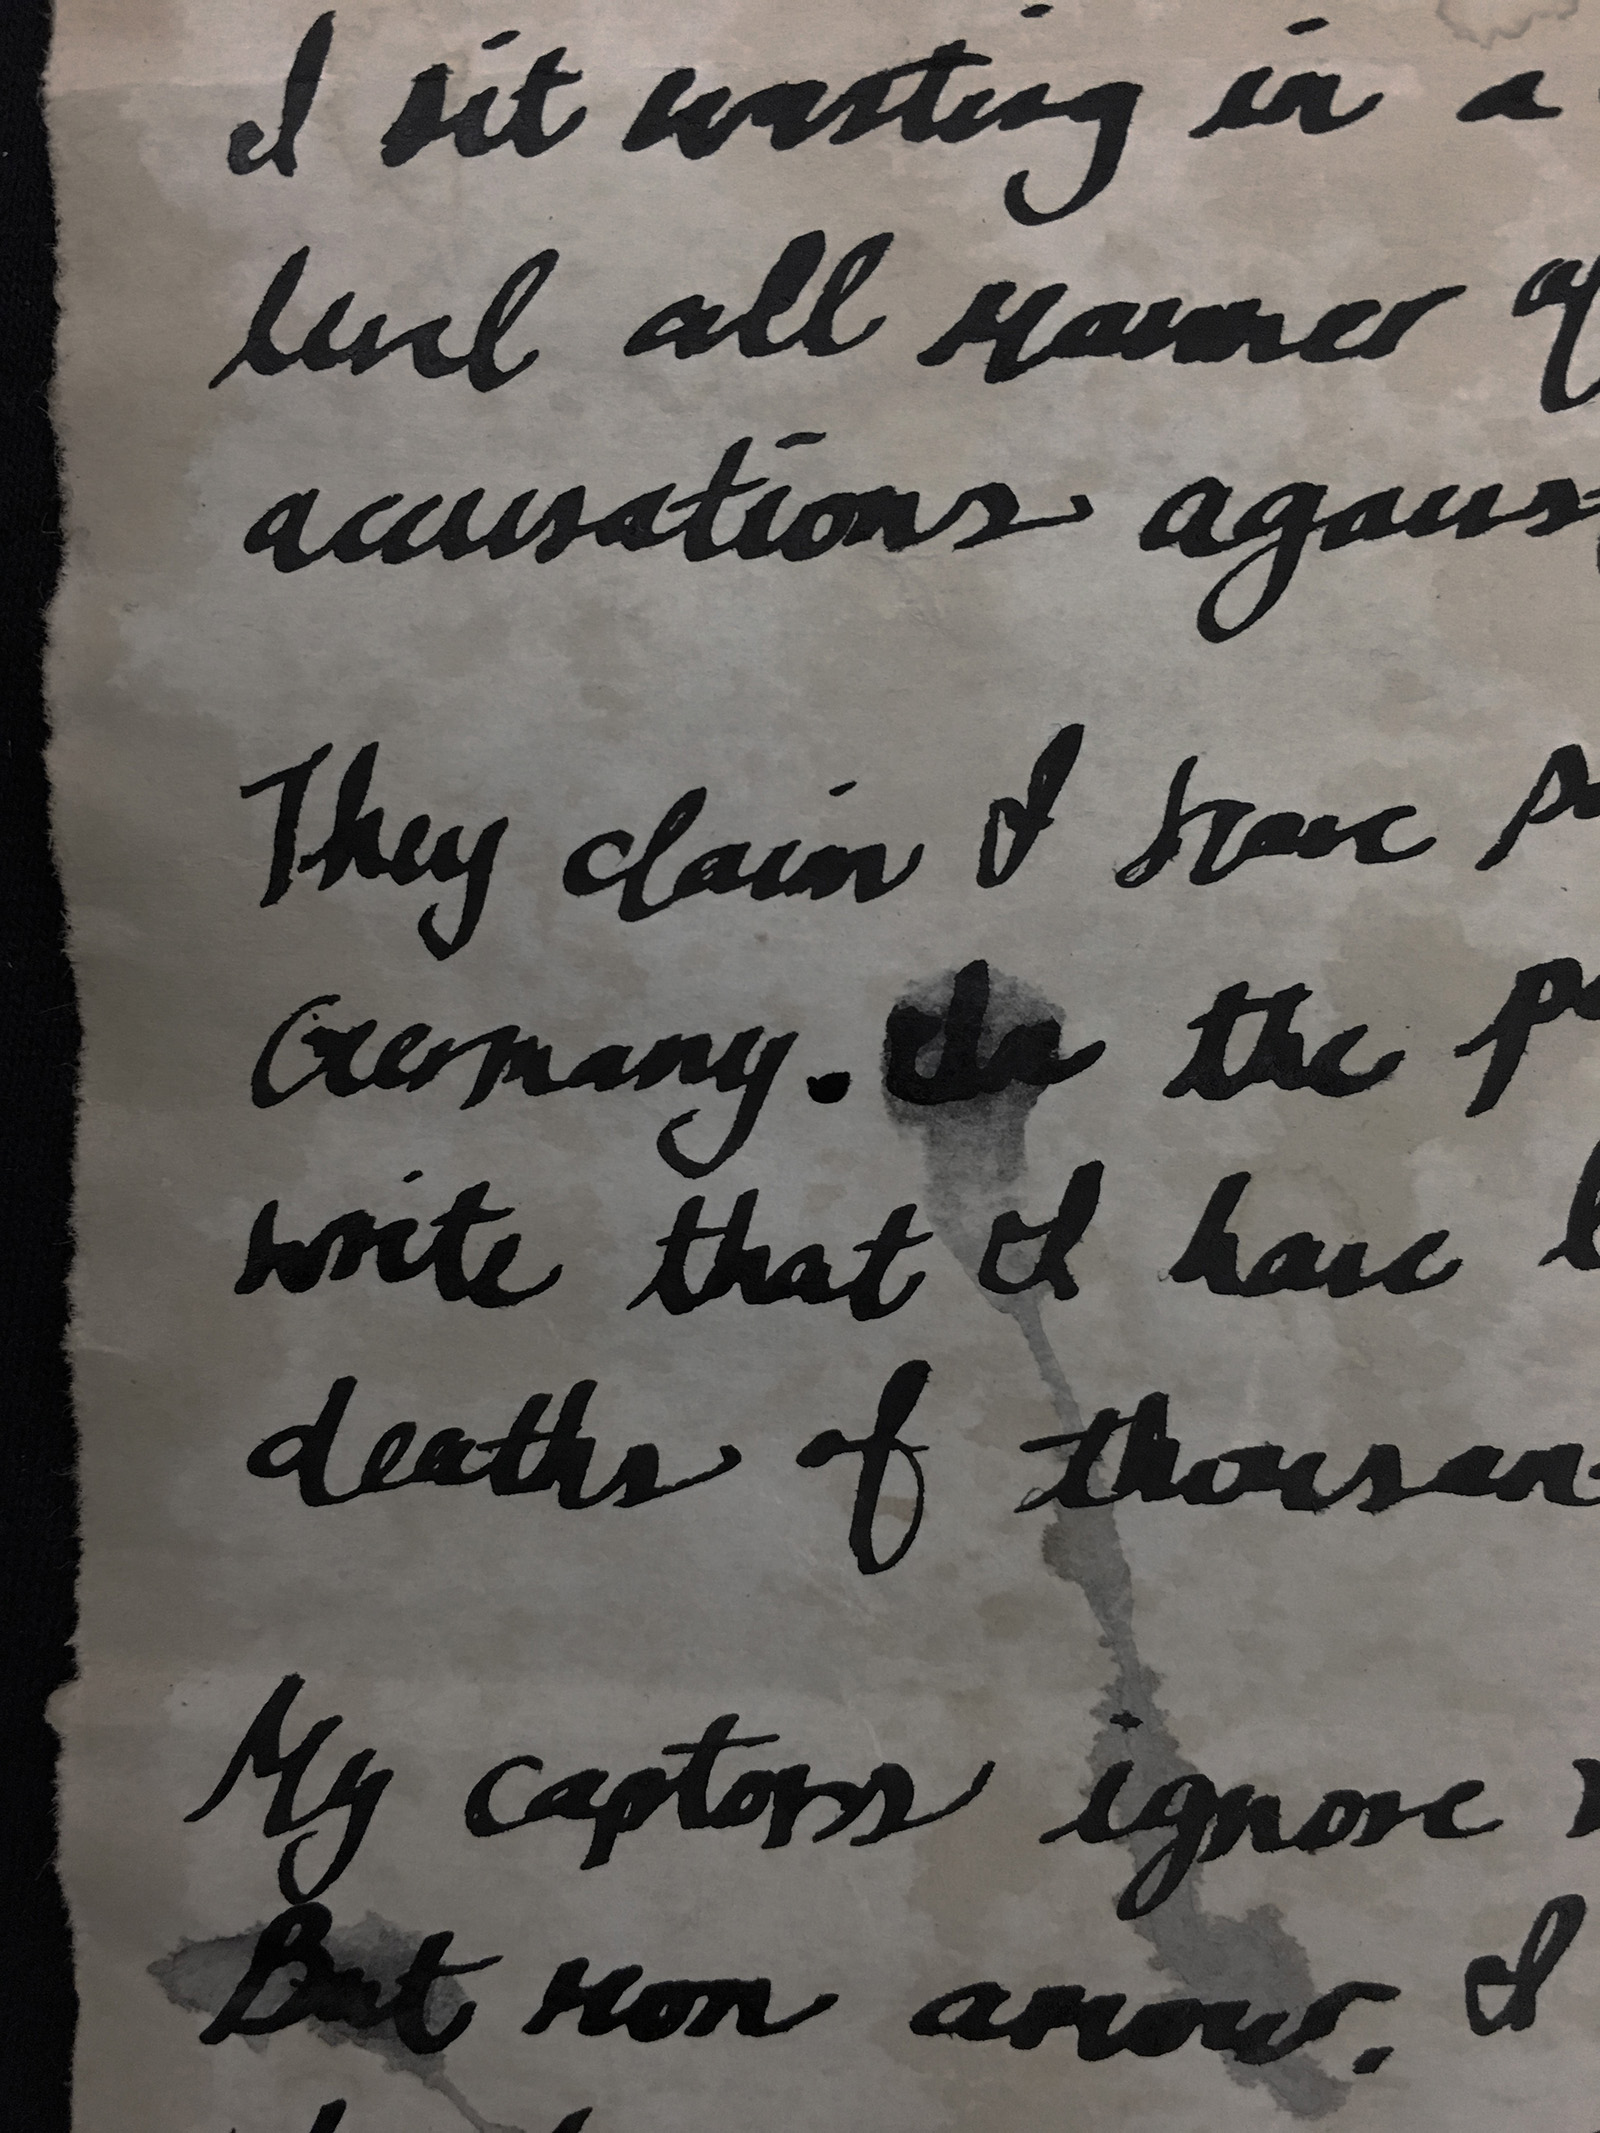 I sit wasting in a
level all manner of
accusations against
They claim I have
Germany. In the
write that I have
deaths of thousan
My captors ignore
But mon amour. I